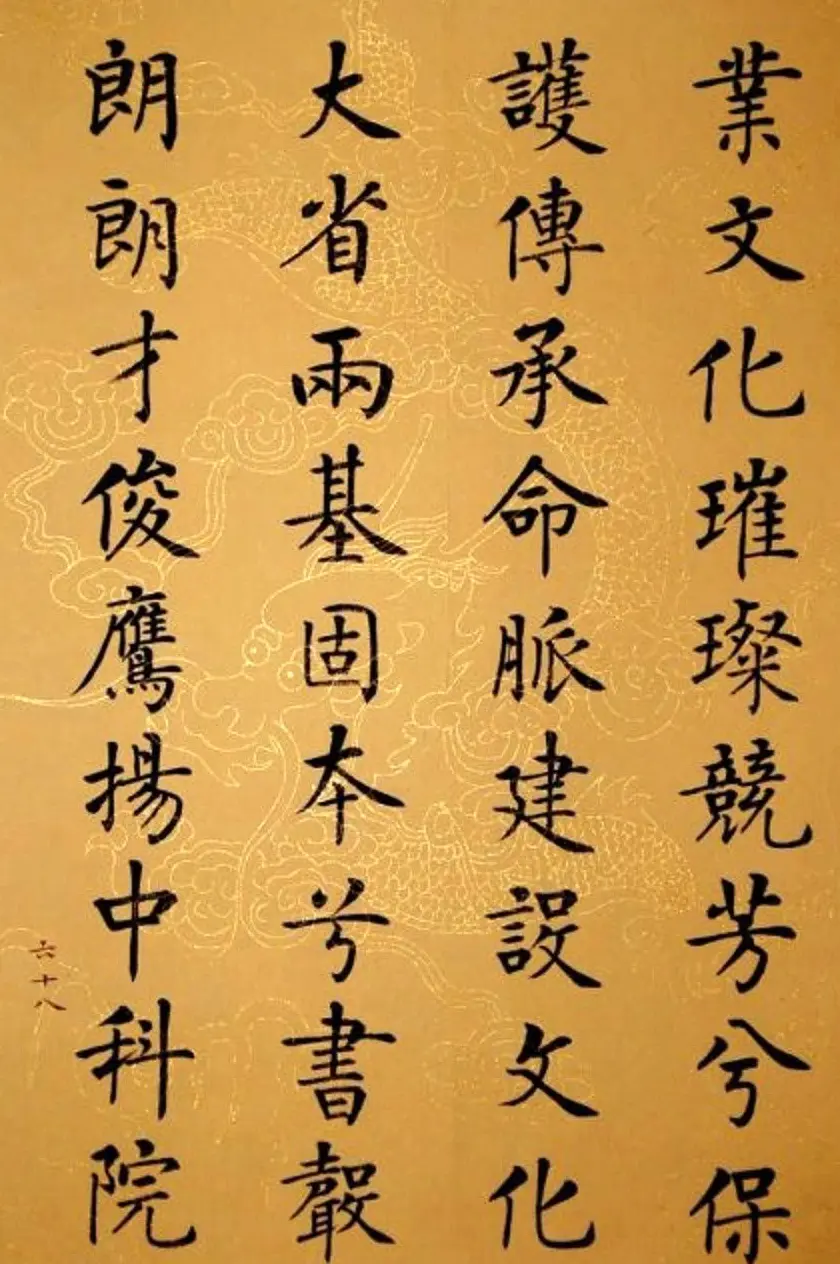 業文化璀璨競芳兮保
護傳承命脈建設文化
大省兩基固本兮書聲
朗朗才俊鷹揚中科院
六十八